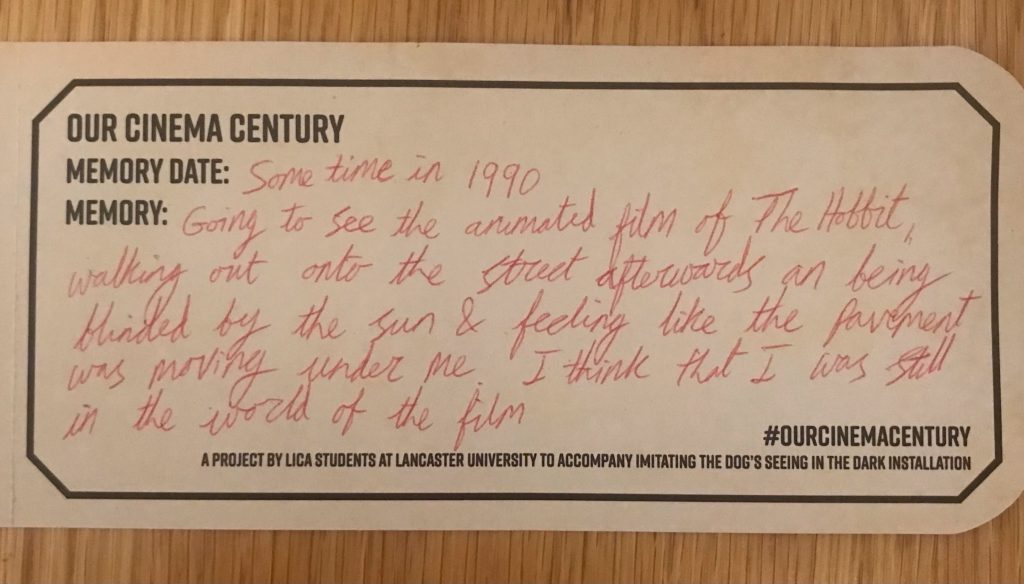 OUR CINEMA CENTURY
MEMORY DATE: Some time in 1990
MEMORY: Going to see the animated film of The Hobbit,
walking out onto the street afterwards an being
blinded by the sun & feeling like the pavement
was moving under me. I think that I was still
in the world of the film
#OURCINEMACENTURY
A PROJECT BY LICA STUDENTS AT LANCASTER UNIVERSITY TO ACCOMPANY IMITATING THE DOG'S SEEING IN THE DARK INSTALLATION